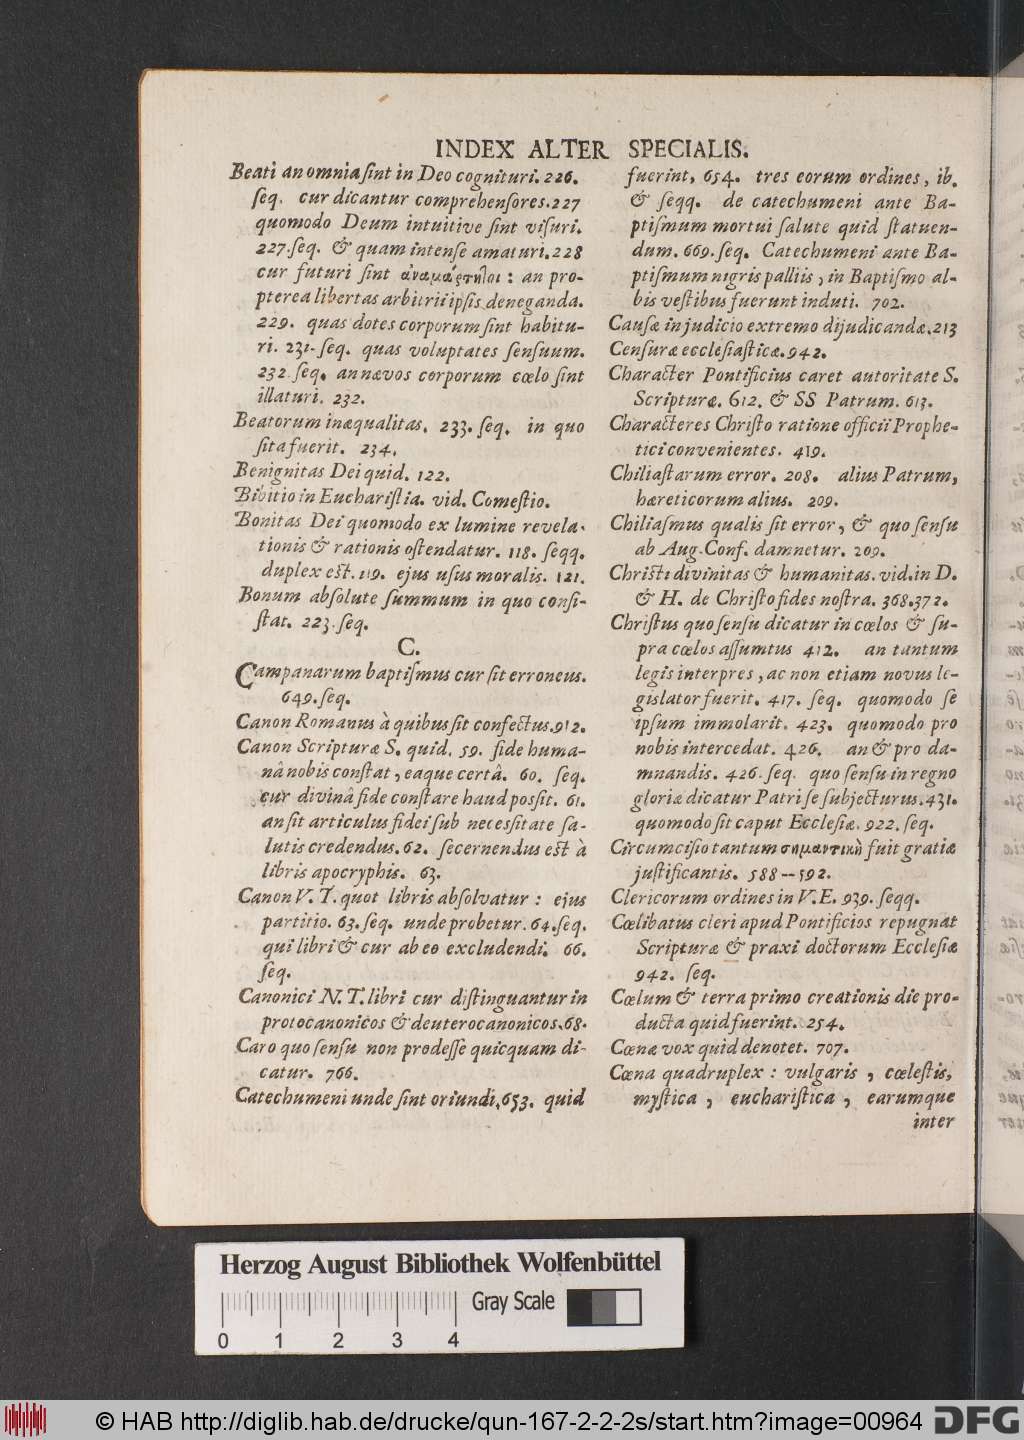 INDEX ALTER SPECIALIS.
Beati an omnia ſint in Deo cognituri. 226.
ſeq. cur dicantur comprehenſores. 227
quomodo Deum intuitive ſint viſuri.
227. ſeq. & quam intenſe amaturi. 228
cur futuri ſint ἀναμάρτητοι: an pro-
pterea libertas arbitrii ipſis deneganda.
229. quas dotes corporum ſint habitu-
ri. 231. ſeq. quas voluptates ſenſuum.
232. ſeq. an nævos corporum cœlo ſint
illaturi. 232.
Beatorum inæqualitas. 233. ſeq. in quo
ſita fuerit. 234.
Benignitas Dei quid. 122.
Bibitio in Euchariſtia. vid. Comeſtio.
Bonitas Dei quomodo ex lumine revela-
tionis & rationis oſtendatur. 118. ſeqq.
duplex eſt. 119. ejus uſus moralis. 121.
Bonum abſolute ſummum in quo conſi-
ſtat. 223. ſeq.
C.
Campanarum baptiſmus cur ſit erroneus.
649. ſeq.
Canon Romanus à quibus ſit confectus. 912.
Canon Scripturæ S. quid. 59. fide huma-
nâ nobis conſtat, eaque certâ. 60. ſeq.
cur divinâ fide conſtare haud poſſit. 61.
an ſit articulus fidei ſub neceſſitate ſa-
lutis credendus. 62. ſecernendus eſt à
libris apocryphis. 63.
Canon V. T. quot libris abſolvatur: ejus
partitio. 63. ſeq. unde probetur. 64. ſeq.
qui libri & cur ab eo excludendi. 66.
ſeq.
Canonici N. T. libri cur diſtinguantur in
protocanonicos & deuterocanonicos. 68.
Caro quo ſenſu non prodeſſe quicquam di-
catur. 766.
Catechumeni unde ſint oriundi, 653. quid
fuerint, 654. tres eorum ordines, ib.
& ſeqq. de catechumeni ante Ba-
ptiſmum mortui ſalute quid ſtatuen-
dum. 669. ſeq. Catechumeni ante Ba-
ptiſmum nigris palliis, in Baptiſmo al-
bis veſtibus fuerunt induti. 702.
Cauſæ in judicio extremo dijudicandæ. 213
Cenſuræ eccleſiaſticæ. 942.
Character Pontificius caret autoritate S.
Scripturæ. 612. & SS Patrum. 613.
Characteres Chriſto ratione officii Prophe-
tici convenientes. 419.
Chiliaſtarum error. 208. alius Patrum,
hæreticorum alius. 209.
Chiliaſmus qualis ſit error, & quo ſenſu
ab Aug. Conf. damnetur. 209.
Chriſti divinitas & humanitas. vid. in D.
& H. de Chriſto fides noſtra. 368. 372.
Chriſtus quo ſenſu dicatur in cœlos & ſu-
pra cœlos aſſumtus 412. an tantum
legis interpres, ac non etiam novus le-
gislator fuerit. 417. ſeq. quomodo ſe
ipſum immolarit. 423. quomodo pro
nobis intercedat. 426. an & pro da-
mnandis. 426. ſeq. quo ſenſu in regno
gloriæ dicatur Patri ſe ſubjecturus. 431.
quomodo ſit caput Eccleſiæ. 922. ſeq.
Circumciſio tantum σημαντικὴ fuit gratiæ
juſtificantis. 588--592.
Clericorum ordines in V. E. 939. ſeqq.
Cœlibatus cleri apud Pontificios repugnat
Scripturæ & praxi doctorum Eccleſiæ
942. ſeq.
Cœlum & terra primo creationis die pro-
ducta quid fuerint. 254.
Cœnæ vox quid denotet. 707.
Cœna quadruplex: vulgaris, cœleſtis,
myſtica, euchariſtica, earumque
inter
Herzog August Bibliothek Wolfenbüttel
Gray Scale
0 1 2 3 4
© HAB http://diglib.hab.de/drucke/qun-167-2-2-2s/start.htm?image=00964
DFG